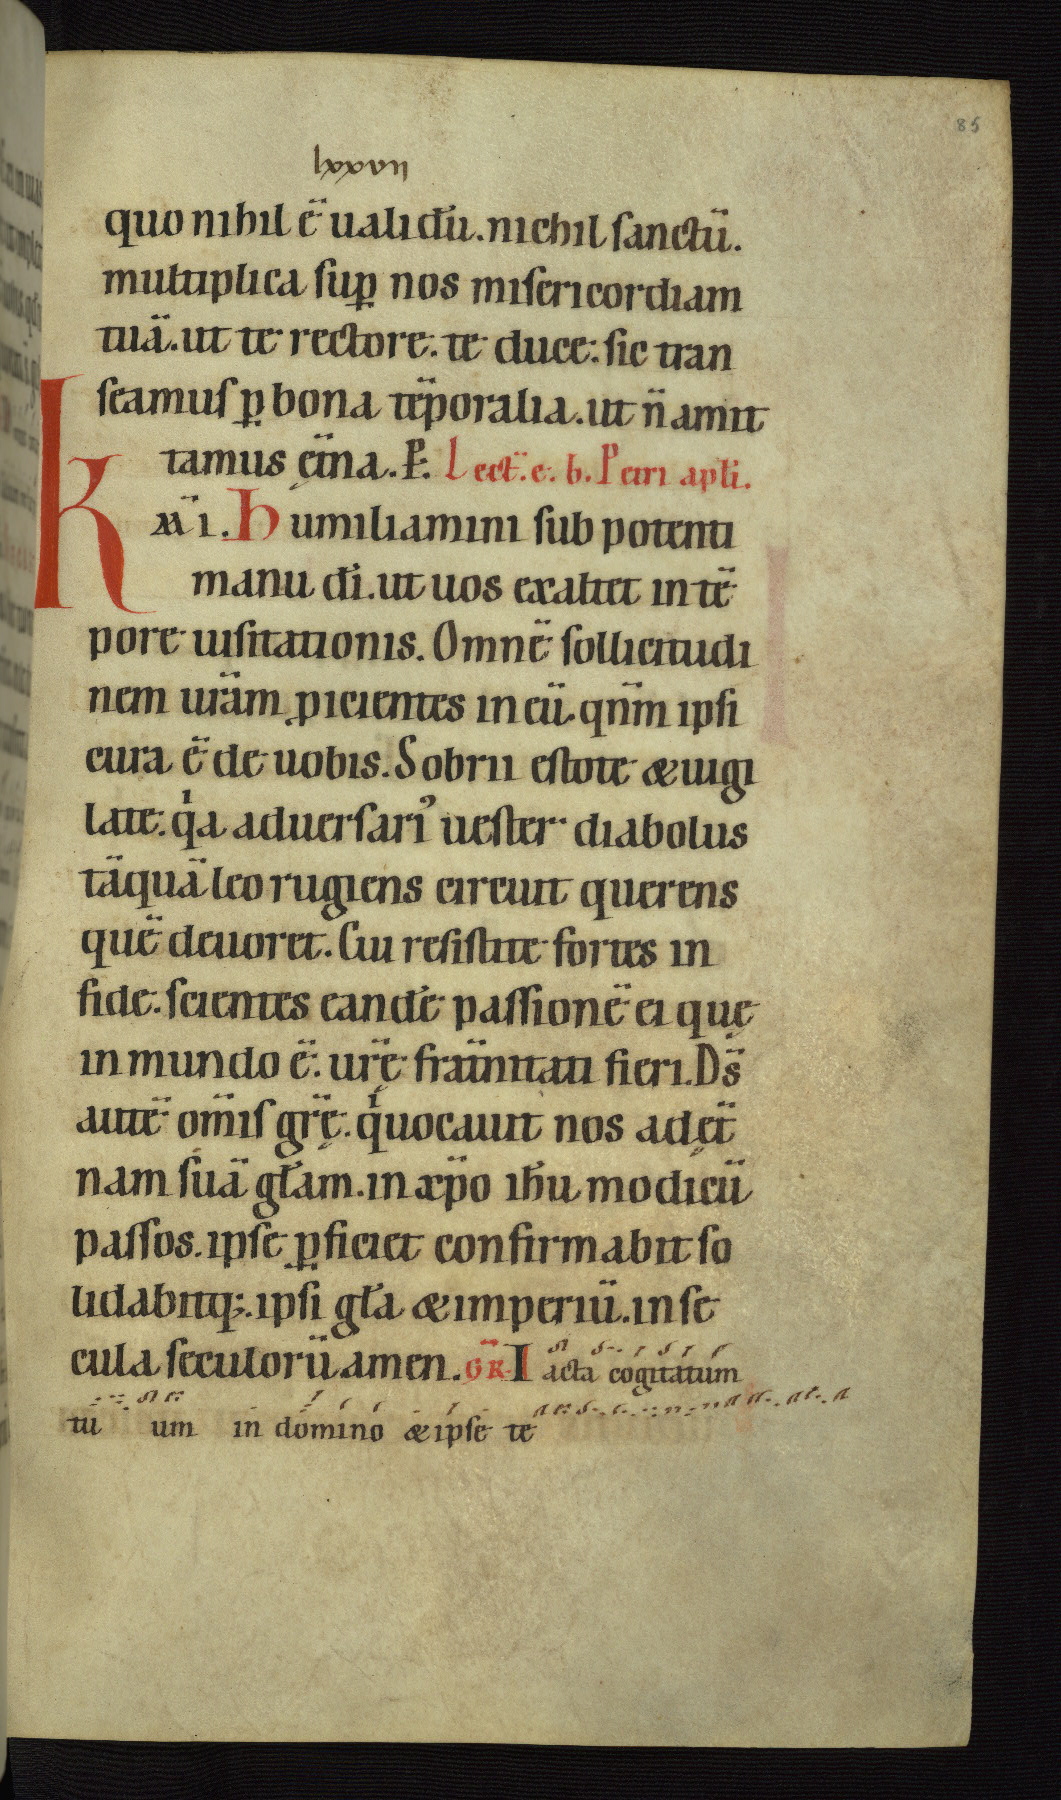 85
lxxvii
quo nihil ē ualidū. nichil sanctū.
multiplica suꝑ nos misericordiam
tuā. ut te rectore. te duce. sic tran
seamus ꝑ bona tēporalia. ut n̄ amit
tamus ęt̄na. P̄. Lect̄. e. b. Petri apli.
K
m̄i. Humiliamini sub potenti
manu dī. ut uos exaltet in tē
pore uisitationis. Omnē sollicitudi
nem ur̄am ꝓicientes in eū. qn̄m ipsi
cura ē de uobis. Sobrii estote & uigi
late. qͥa aduersariꝰ uester diabolus
tāquā leo rugiens circuit querens
quē deuoret. Cui resistite fortes in
fide. scientes eandē passionē ei quę
in mundo ē. ur̄ę frat̄nitati fieri. Ds̄
autē om̄is gr̄ę. qͥ uocauit nos ad ęt̄
nam suā gl̄am. in xp̄o ih̄u modicū
passos. ipse ꝑficiet confirmabit so
lidabitq;. ipsi gl̄a & imperiū. in se
cula seculorū amen. GR̄. Iacta cogitatum
tu um in domino & ipse te